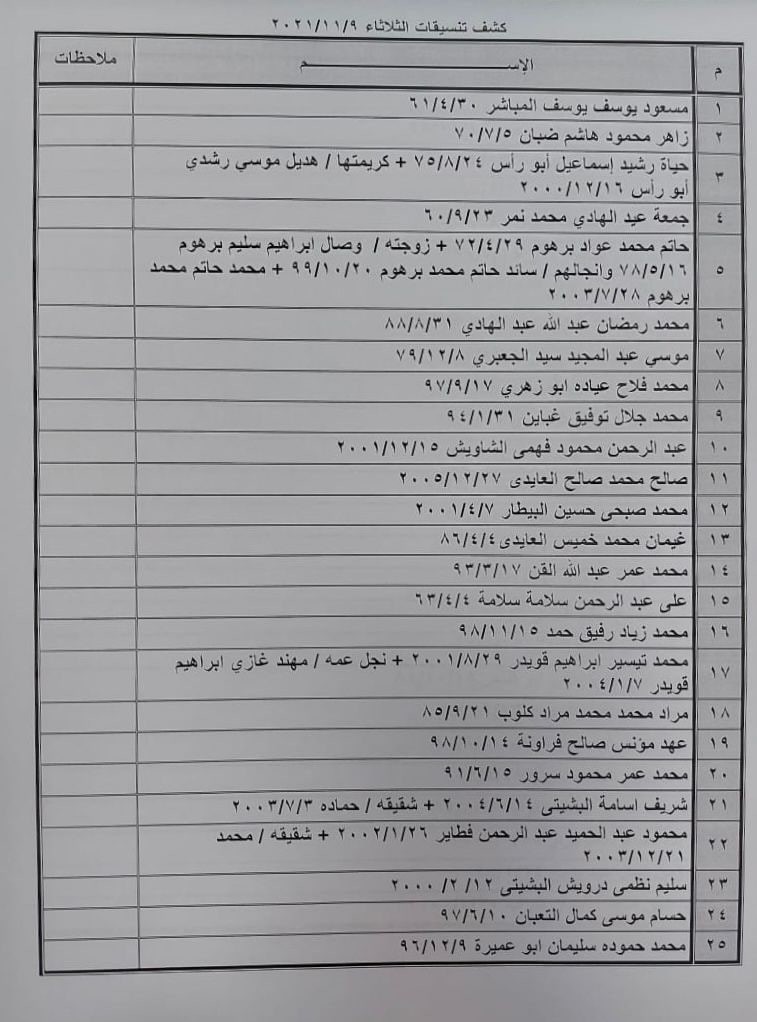 كشف تنسيقات الثلاثاء ٢٠٢١/١١/٩
م الإســـــــم ملاحظات
١ مسعود يوسف يوسف المباشر ٦١/٤/٣٠
٢ زاهر محمود هاشم ضبان ٧٠/٧/٥
٣ حياة رشيد إسماعيل أبو رأس ٧٥/٨/٢٤ + كريمتها / هديل موسي رشدي
أبو رأس ٢٠٠٠/١٢/١٦
٤ جمعة عيد الهادي محمد نمر ٦٠/٩/٢٣
٥ حاتم محمد عواد برهوم ٧٢/٤/٢٩ + زوجته / وصال ابراهيم سليم برهوم
٧٨/٥/١٦ وانجالهم / سائد حاتم محمد برهوم ٩٩/١٠/٢٠ + محمد حاتم محمد
برهوم ٢٠٠٣/٧/٢٨
٦ محمد رمضان عبد الله عبد الهادي ٨٨/٨/٣١
٧ موسي عبد المجيد سيد الجعبري ٧٩/١٢/٨
٨ محمد فلاح عياده ابو زهري ٩٧/٩/١٧
٩ محمد جلال توفيق غباين ٩٤/١/٣١
١٠ عبد الرحمن محمود فهمى الشاويش ٢٠٠١/١٢/١٥
١١ صالح محمد صالح العايدى ٢٠٠٥/١٢/٢٧
١٢ محمد صبحى حسين البيطار ٢٠٠١/٤/٧
١٣ غيمان محمد خميس العايدى ٨٦/٤/٤
١٤ محمد عمر عبد الله القن ٩٣/٣/١٧
١٥ على عبد الرحمن سلامة سلامة ٦٣/٤/٤
١٦ محمد زياد رفيق حمد ٩٨/١١/١٥
١٧ محمد تيسير ابراهيم قويدر ٢٠٠١/٨/٢٩ + نجل عمه / مهند غازي ابراهيم
قويدر ٢٠٠٤/١/٧
١٨ مراد محمد محمد مراد كلوب ٨٥/٩/٢١
١٩ عهد مؤنس صالح فراونة ٩٨/١٠/١٤
٢٠ محمد عمر محمود سرور ٩١/٦/١٥
٢١ شريف اسامة البشيتى ٢٠٠٤/٦/١٤ + شقيقه / حماده ٢٠٠٣/٧/٣
٢٢ محمود عبد الحميد عبد الرحمن فطاير ٢٠٠٢/١/٢٦ + شقيقه / محمد
٢٠٠٣/١٢/٢١
٢٣ سليم نظمى درويش البشيتى ١٢/ ٢/ ٢٠٠٠
٢٤ حسام موسى كمال التعبان ٩٧/٦/١٠
٢٥ محمد حموده سليمان ابو عميرة ٩٦/١٢/٩